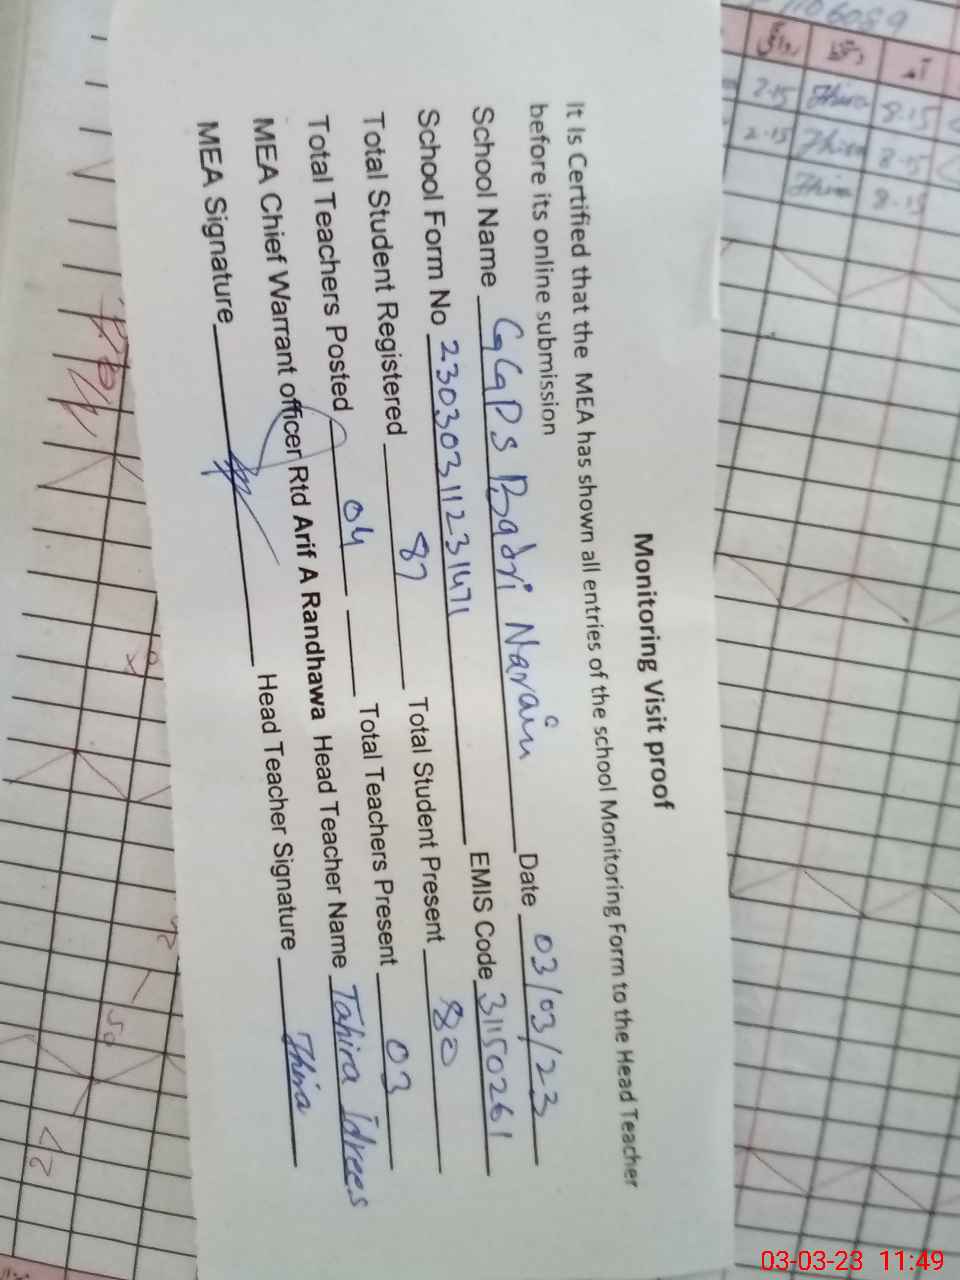 Monitoring Visit proof
It Is Certified that the MEA has shown all entries of the school Monitoring Form to the Head Teacher
before its online submission
School Name GGPS Badri Narain Date 03/03/23
School Form No 23030311231471 EMIS Code 31150261
Total Student Registered 87 Total Student Present 80
Total Teachers Posted 04 Total Teachers Present 03
MEA Chief Warrant officer Rtd Arif A Randhawa Head Teacher Name Tahira Idrees
MEA Signature Head Teacher Signature Thira
106089
روانگی دستخط آمد
2.15 Thira 8.15
2.15 Thira 8.15
Thira 8.15
03-03-23 11:49